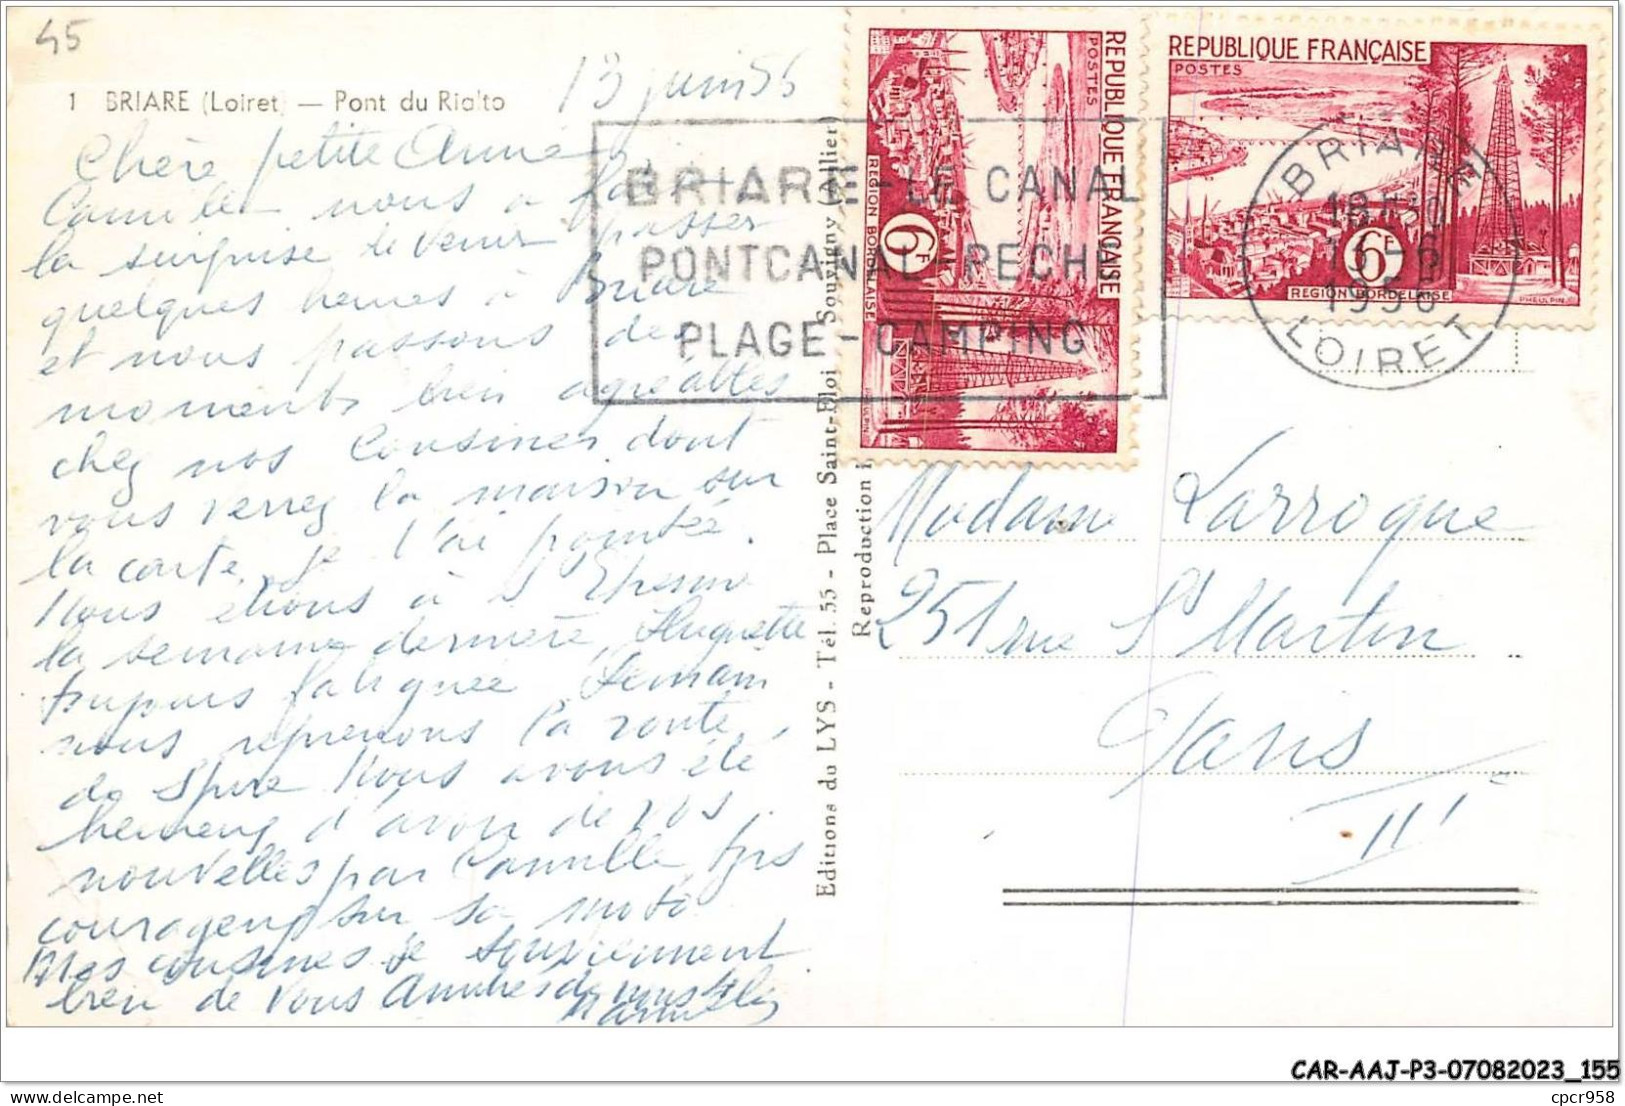 45
1 BRIARE (Loiret) — Pont du Rialto
13 juin 56
Chère petite Anne
Camille nous a fait
la surprise de venir passer
quelques heures à Briare
et nous passons des
moments bien agréables
chez nos Cousines dont
vous verrez la maison sur
la carte, je l'ai pointée.
Nous étions à St Etienne
la semaine dernière, Huguette
toujours fatiguée, demain
nous reprenons la route
de Nous avons été
heureux d'avoir de vos
nouvelles par Camille, tjrs
courageux sur sa moto
Mes cousines se souviennent
bien de vous Amitiés de nous
BRIARE-LE CANAL
PONTCANAL-PECHE
PLAGE-CAMPING
REPUBLIQUE FRANÇAISE
POSTES
REGION BORDELAISE
6F
REPUBLIQUE FRANÇAISE
POSTES
6F
REGION BORDELAISE
PHEULPIN
BRIARE
18H30
13-6
1956
LOIRET
Editions du LYS - Tél. 55 - Place Saint-Eloi Souvigny (Allier)
Reproduction i
Madame Larroque
251 rue St Martin
Paris
III
CAR-AAJ-P3-07082023_155
cpcr958